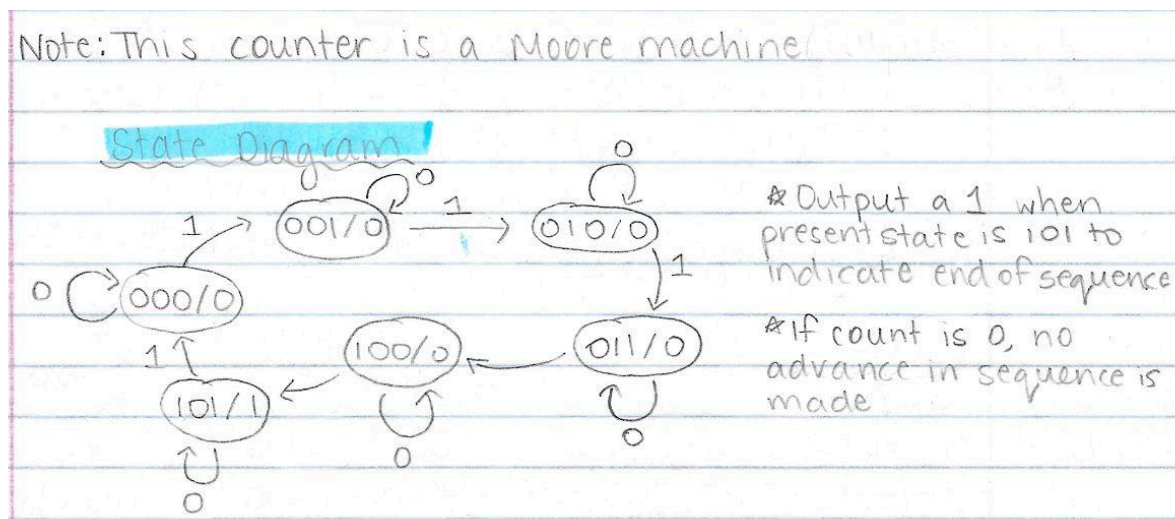 Note: This counter is a Moore machine
State Diagram
0
0
1
001/0
1
010/0
1
0
000/0
1
100/0
011/0
101/1
0
0
0
☆Output a 1 when
present state is 101 to
indicate end of sequence
☆If count is 0, no
advance in sequence is
made